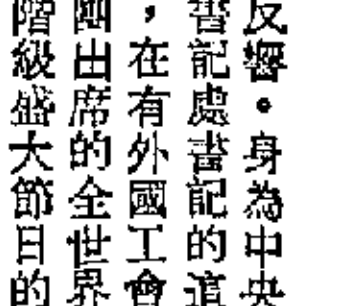 反響。身為中央
書記處書記的這
，在有外國工會
團出席的全世界
階級盛大節日的